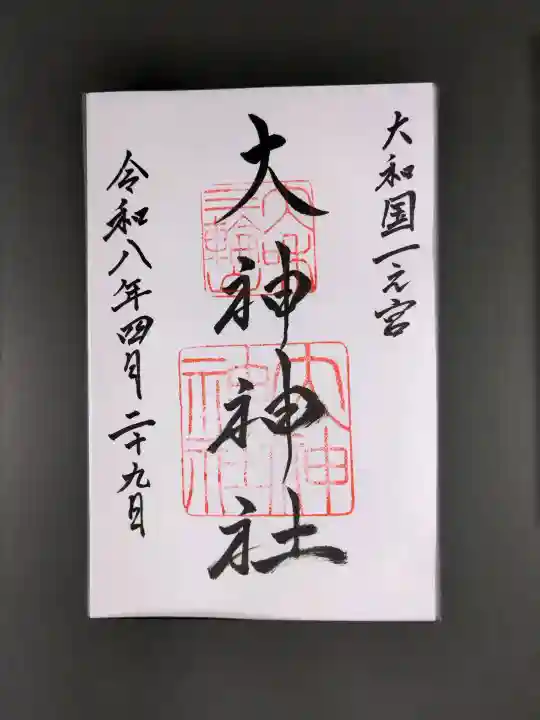 大和国一之宮
大神神社
令和八年四月二十九日
大和
三輪山
大神
神社